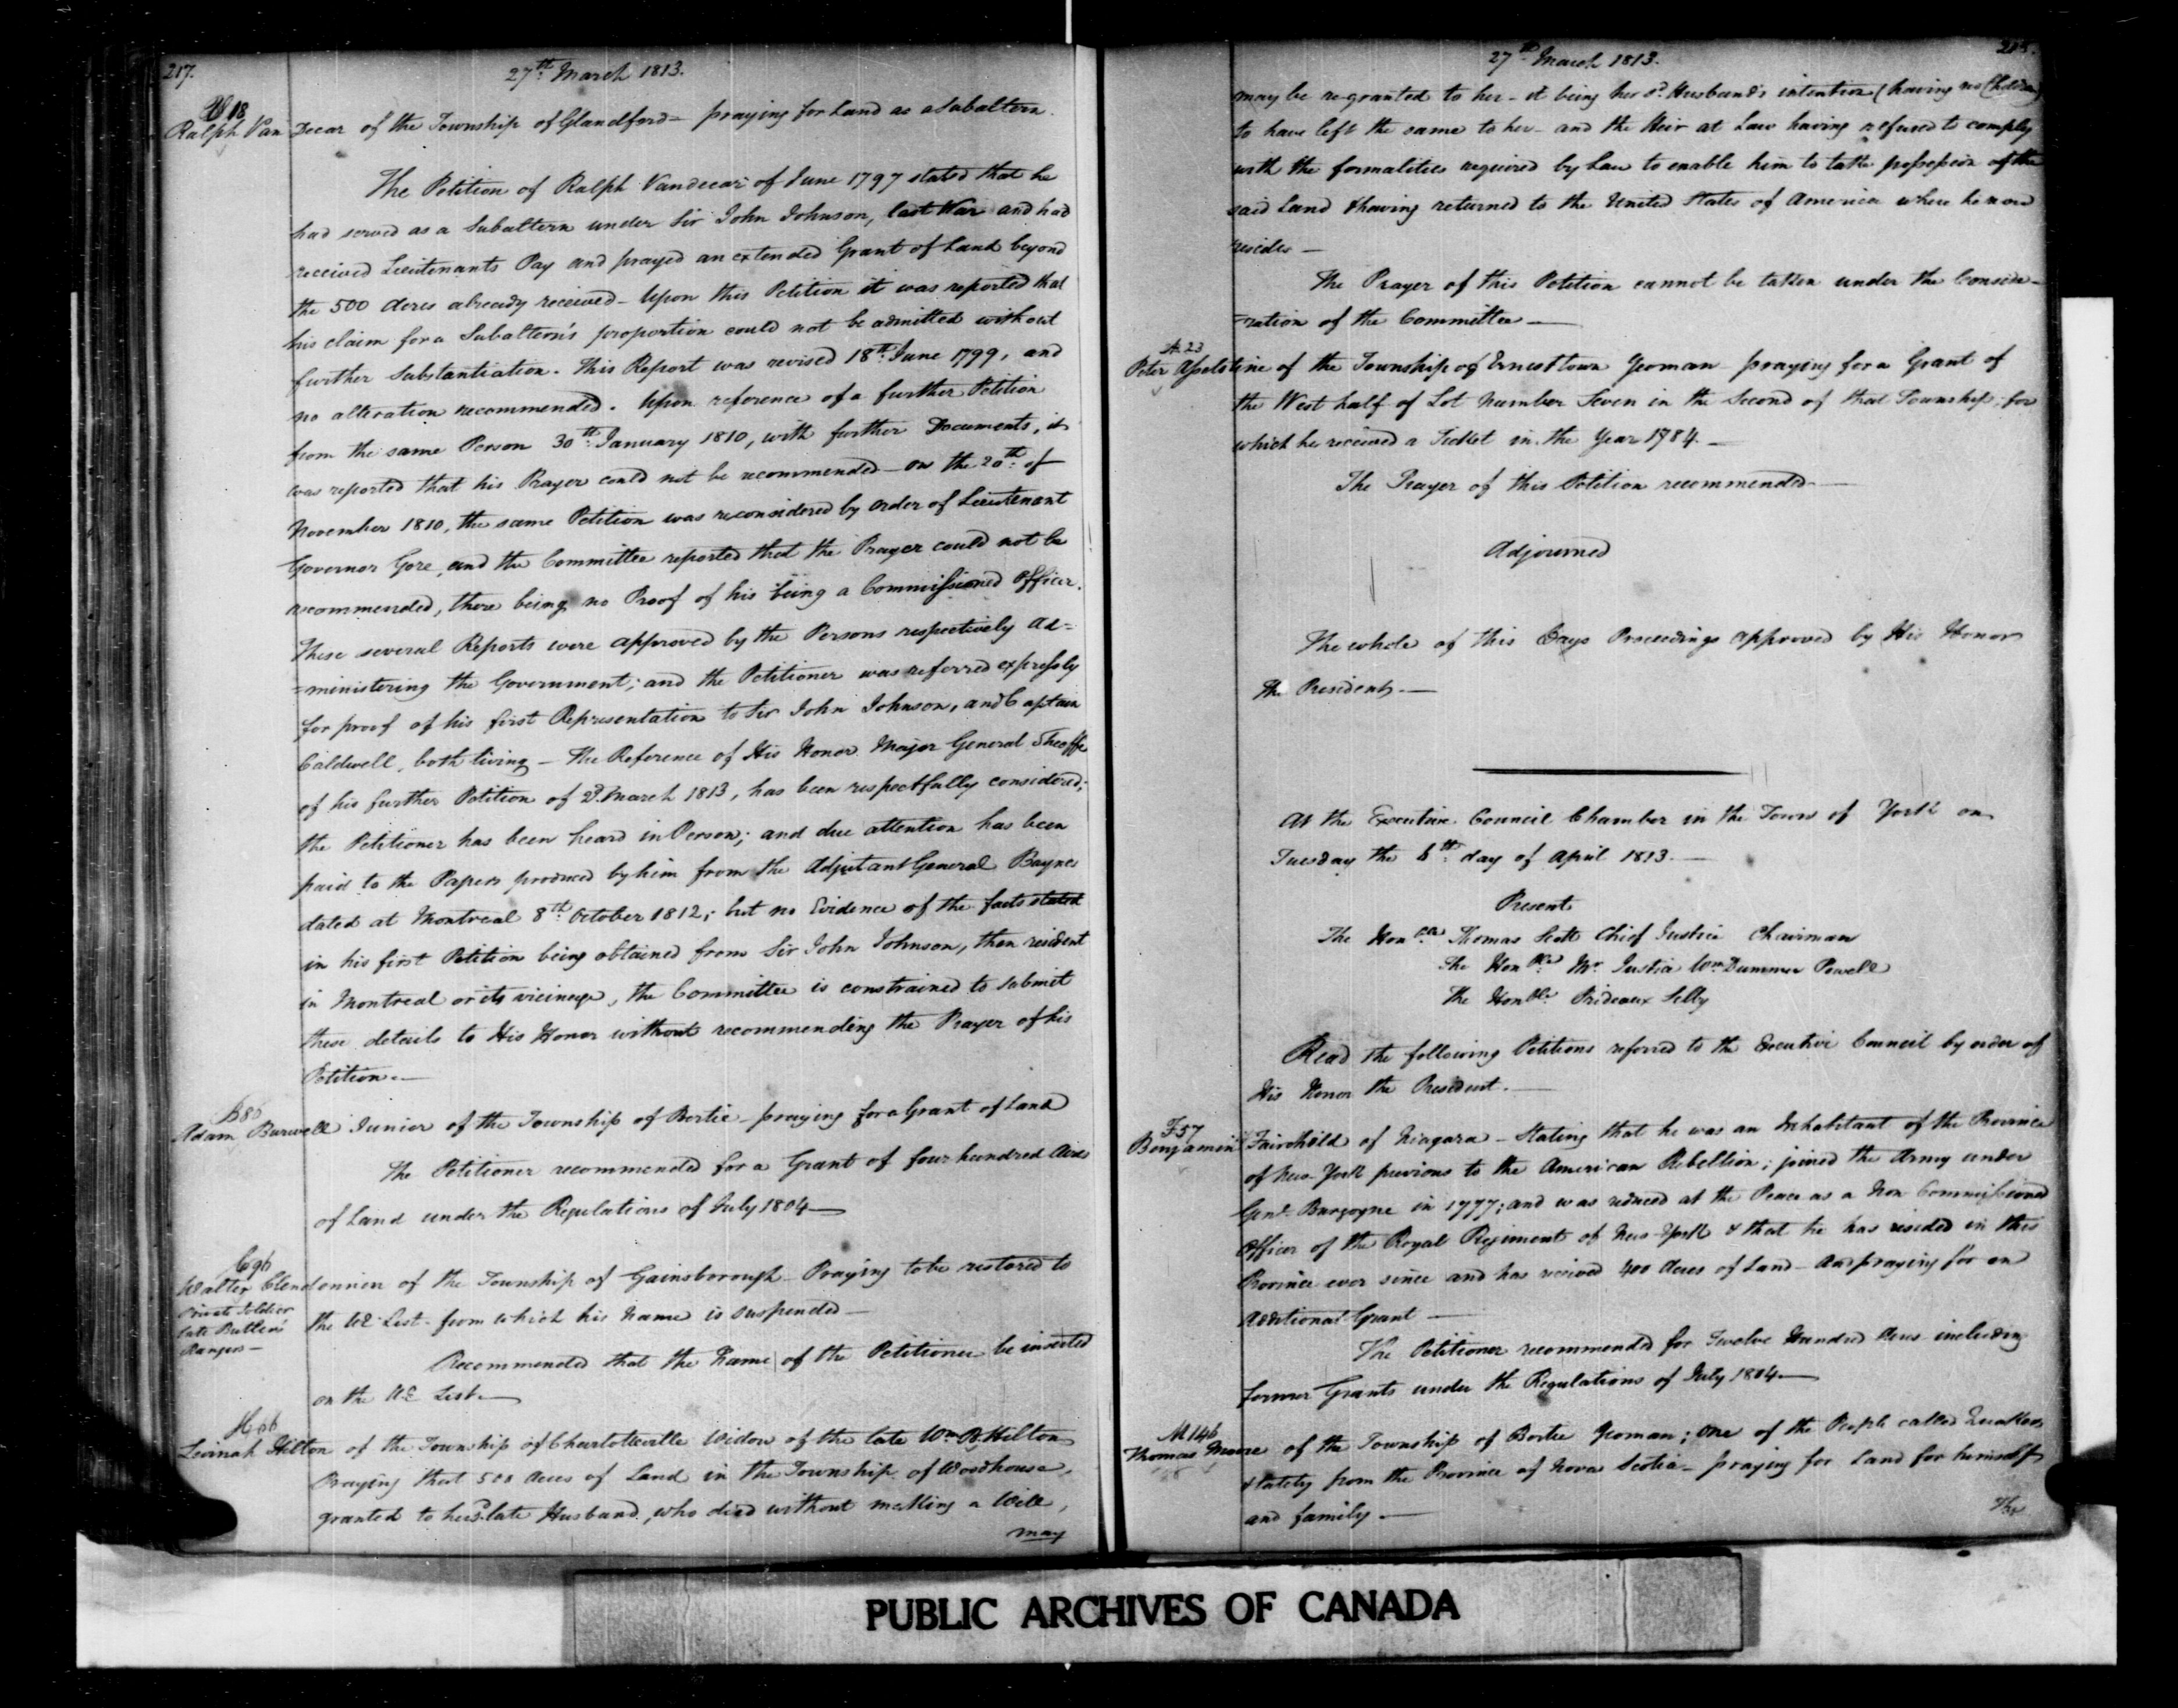 217.
27th. March 1813.
V 18
Ralph Van Decar of the Township of Glandford - praying for Land as a Subaltern.
The Petition of Ralph Vandecar of June 1797 stated that he
had served as a Subaltern under Sir John Johnson, last War and had
received Lieutenants Pay and prayed an extended Grant of Land beyond
the 500 Acres already received - Upon this Petition it was reported that
his claim for a Subaltern's proportion could not be admitted without
further Substantiation. This Report was revised 18th. June 1799, and
no alteration recommended. Upon reference of a further Petition
from the same Person 30th. January 1810, with further Documents, it
was reported that his Prayer could not be recommended - on the 20th. of
November 1810, the same Petition was reconsidered by order of Lieutenant
Governor Gore, and the Committee reported that the Prayer could not be
recommended, there being no Proof of his being a Commissioned Officer.
These several Reports were approved by the Persons respectively Ad=
=ministering the Government; and the Petitioner was referred expressly
for proof of his first Representation to Sir John Johnson, and Captain
Caldwell, both living - The Reference of His Honor Major General Sheaffe
of his further Petition of 2d. March 1813, has been respectfully considered;
the Petitioner has been heard in Person; and due attention has been
paid to the Papers produced by him from the Adjutant General Baynes
dated at Montreal 8th. October 1812; but no Evidence of the facts stated
in his first Petition being obtained from Sir John Johnson, then resident
in Montreal or its vicinage, the Committee is constrained to submit
these details to His Honor without recommending the Prayer of his
Petition. —
B 86
Adam Burwell Junior of the Township of Bertie - praying for a Grant of Land
The Petitioner recommended for a Grant of four hundred Acres
of Land under the Regulations of July 1804 —
C 96
Walter Clendennien of the Township of Gainsborough - Praying to be restored to
Private Soldier
late Butler's
Rangers —
the UE List from which his Name is suspended —
Recommended that the Name of the Petitioner be inserted
on the U.E List. —
H 66
Levinah Hilton of the Township of Charlotteville Widow of the late Wm. Hilton
Praying that 500 Acres of Land in the Township of Woodhouse,
granted to her sd. late Husband, who died without making a Will,
may
27th March 1813.
218.
may be re-granted to her - it being her sd. Husband's intention (having no Children)
to have left the same to her - and the Heir at Law having refused to comply
with the formalities required by Law to enable him to take possession of the
said Land & having returned to the United States of America where he now
resides —
The Prayer of this Petition cannot be taken under the Conside-
=ration of the Committee —
A 23
Peter Asselstine of the Township of Ernesttown Yeoman - praying for a Grant of
the West half of Lot Number Seven in the Second of that Township, for
which he received a Ticket in the Year 1784. —
The Prayer of this Petition recommended —
Adjourned
The whole of this Days Proceedings approved by His Honor
The President. —
At the Executive Council Chamber in the Town of York on
Tuesday the 6th. day of April 1813. —
Present
The Honble. Thomas Scott Chief Justice Chairman
The Honble. Mr. Justice Wm. Dummer Powell
The Honble. Prideaux Selby
Read the following Petitions referred to the Executive Council by order of
His Honor the President. —
F 57
Benjamin Fairchild of Niagara - Stating that he was an Inhabitant of the Province
of New-York previous to the American Rebellion; joined the Army under
Genl. Burgoyne in 1777; and was reduced at the Peace as a Non Commissioned
Officer of the Royal Regiment of New-York & that he has resided in this
Province ever since and has received 400 Acres of Land - And praying for an
Additional Grant —
The Petitioner recommended for Twelve Hundred Acres including
former Grants under the Regulations of July 1804 —
M 146
Thomas Moore of the Township of Bertie Yeoman; one of the People called Quakers
& lately from the Province of Nova Scotia - praying for Land for himself
and family. —
The
PUBLIC ARCHIVES OF CANADA